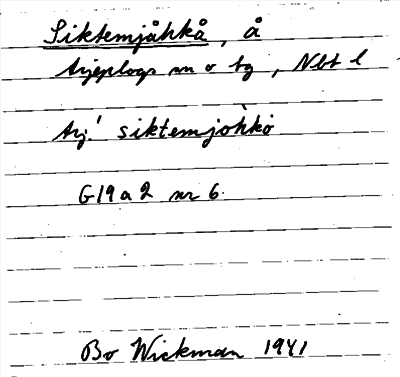 Siktemjåhkå, å
Arjeplogs sn o tg, Nbt l
Arj! siktemjòhkò
G19a2 nr 6
Bo Wickman 1941